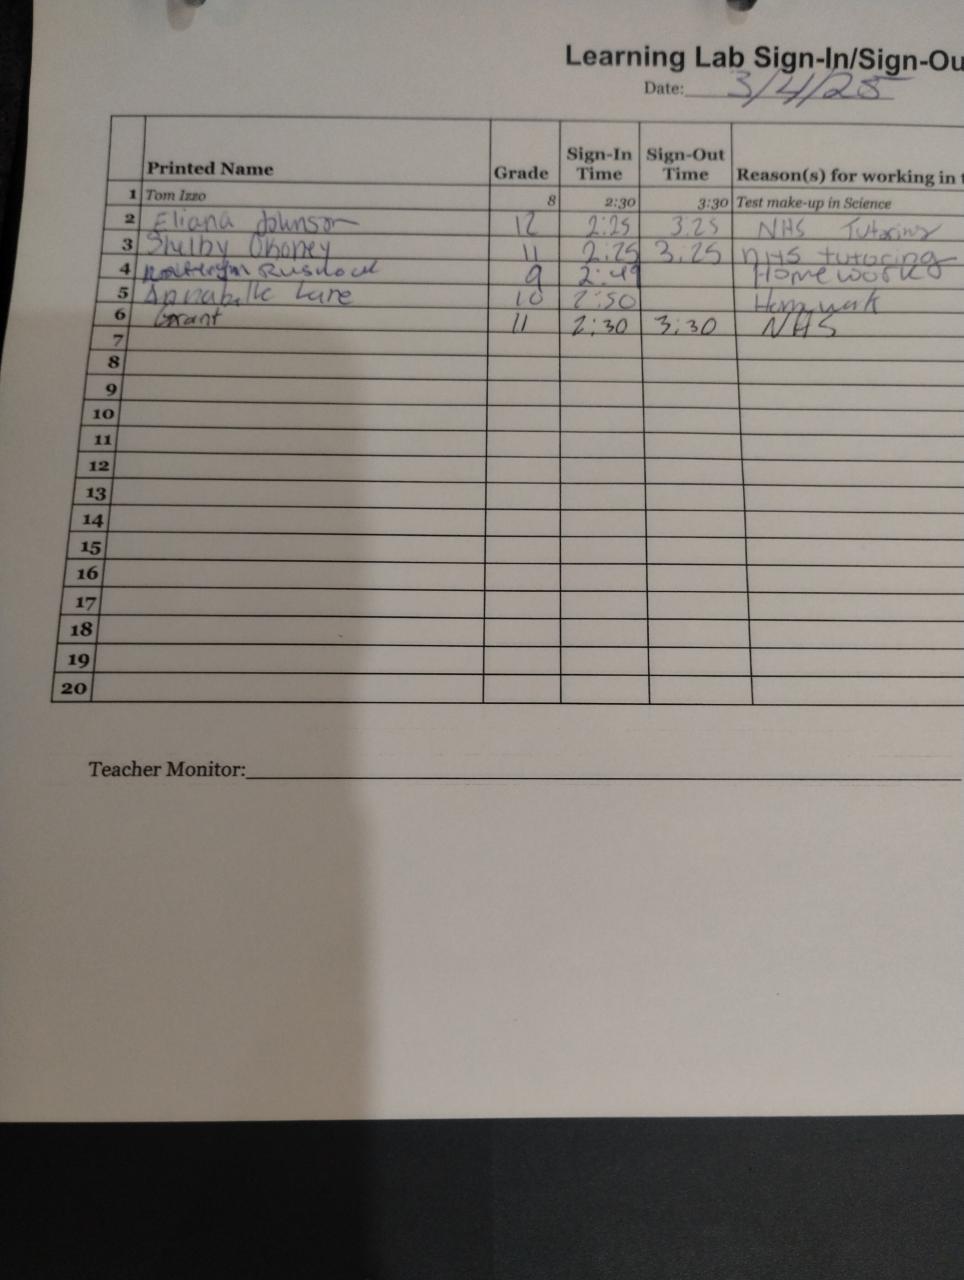 Learning Lab Sign-In/Sign-Ou
Date: 3/4/25
Printed Name Grade Sign-In Time Sign-Out Time Reason(s) for working in t
1 Tom Izzo 8 2:30 3:30 Test make-up in Science
2 Eliana Johnson 12 2:25 3:25 NHS Tutoring
3 Shelby 11 2:25 3:25 NHS tutoring
4 9 2:49 Homework
5 Annabelle Lane 10 2:50 Homework
6 Grant 11 2:30 3:30 NHS
7
8
9
10
11
12
13
14
15
16
17
18
19
20
Teacher Monitor: